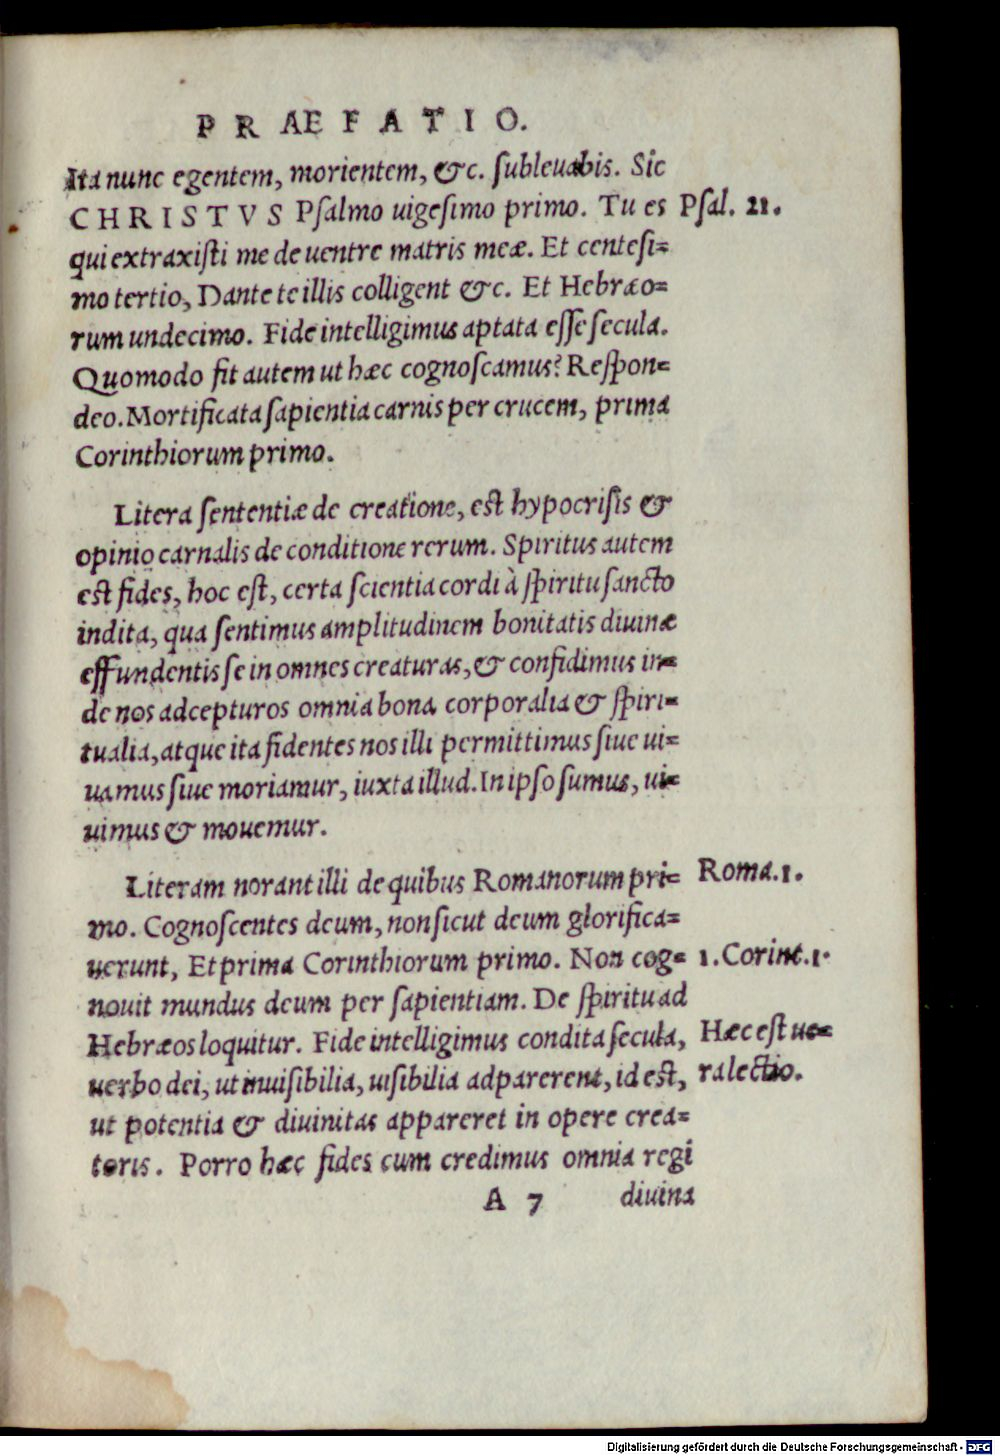 PRAEFATIO.
Ita nunc egentem, morientem, &c. subleuabis. Sic
CHRISTVS Psalmo uigesimo primo. Tu es
Psal. 21.
qui extraxisti me de uentre matris meæ. Et centesi=
mo tertio, Dante te illis colligent &c. Et Hebræo=
rum undecimo. Fide intelligimus aptata esse secula.
Quomodo fit autem ut hæc cognoscamus? Respon=
deo. Mortificata sapientia carnis per crucem, prima
Corinthiorum primo.
Litera sententiæ de creatione, est hypocrisis &
opinio carnalis de conditione rerum. Spiritus autem
est fides, hoc est, certa scientia cordi à spiritu sancto
indita, qua sentimus amplitudinem bonitatis diuinæ
effundentis se in omnes creaturas, & confidimus in=
de nos adcepturos omnia bona corporalia & spiri=
tualia, atque ita fidentes nos illi permittimus siue ui=
uamus siue moriamur, iuxta illud. In ipso sumus, ui=
uimus & mouemur.
Literam norant illi de quibus Romanorum pri=
Roma. 1.
mo. Cognoscentes deum, non sicut deum glorifica=
uerunt, Et prima Corinthiorum primo. Non cog=
1. Corint. 1.
nouit mundus deum per sapientiam. De spiritu ad
Hebræos loquitur. Fide intelligimus condita secula,
Hæc est ue=
uerbo dei, ut inuisibilia, uisibilia adparerent, id est,
ra lectio.
ut potentia & diuinitas appareret in opere crea=
toris. Porro hæc fides cum credimus omnia regi
A 7
diuina
Digitalisierung gefördert durch die Deutsche Forschungsgemeinschaft - DFG